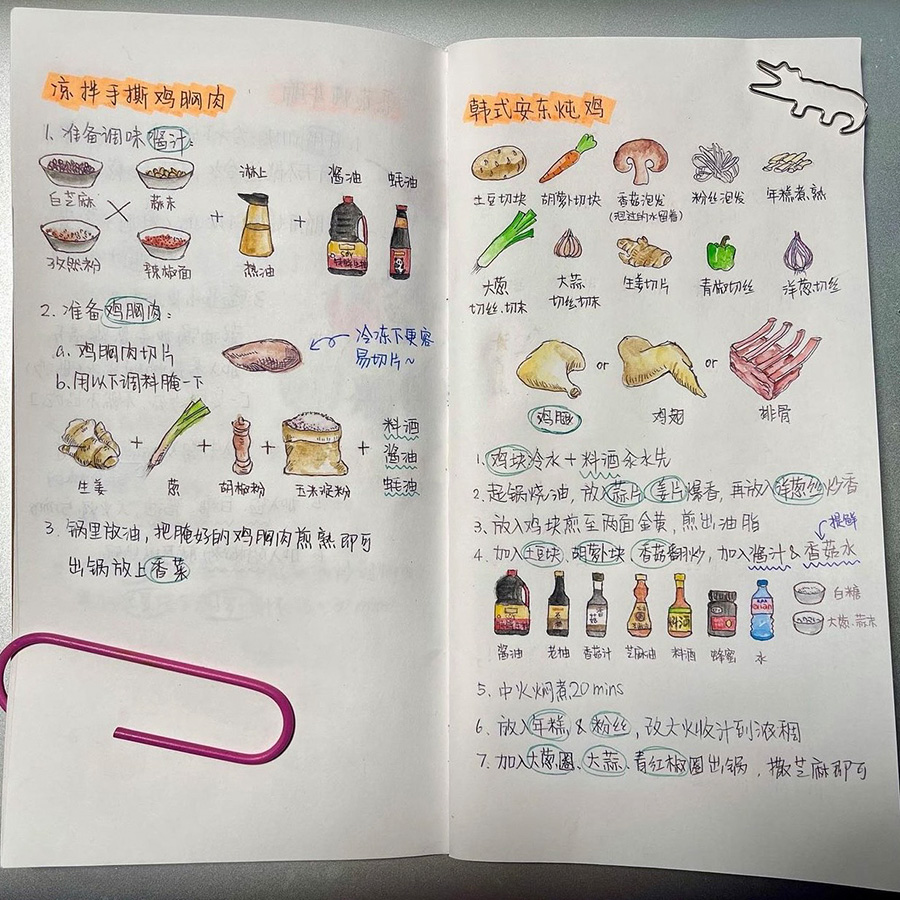 凉拌手撕鸡胸肉
1. 准备调味酱汁:
白芝麻 蒜末 淋上 酱油 蚝油
孜然粉 辣椒面 热油
2. 准备鸡胸肉:
a. 鸡胸肉切片
冷冻下更容
易切片~
b. 用以下调料腌一下
生姜 葱 胡椒粉 玉米淀粉
料酒
酱油
蚝油
3. 锅里放油,把腌好的鸡胸肉煎熟即可
出锅放上香菜
韩式安东炖鸡
土豆切块 胡萝卜切块 香菇泡发 粉丝泡发 年糕煮熟
(泡过的水留着)
大葱 大蒜 生姜切片 青椒切丝 洋葱切丝
切丝.切末 切丝切末
鸡腿 or 鸡翅 or 排骨
1. 鸡块冷水+料酒汆水先
2. 起锅烧油,放入蒜片 姜片爆香,再放入洋葱丝炒香
3. 放入鸡块煎至两面金黄,煎出油脂
提鲜
4. 加入土豆块、胡萝卜块 香菇翻炒,加入酱汁&香菇水
白糖
大葱.蒜末
酱油 老抽 香菇汁 芝麻油 料酒 蜂蜜 水
5. 中火焖煮20 mins
6. 放入年糕 & 粉丝,改大火收汁到浓稠
7. 加入大葱圈、大蒜、青红椒圈出锅,撒芝麻即可